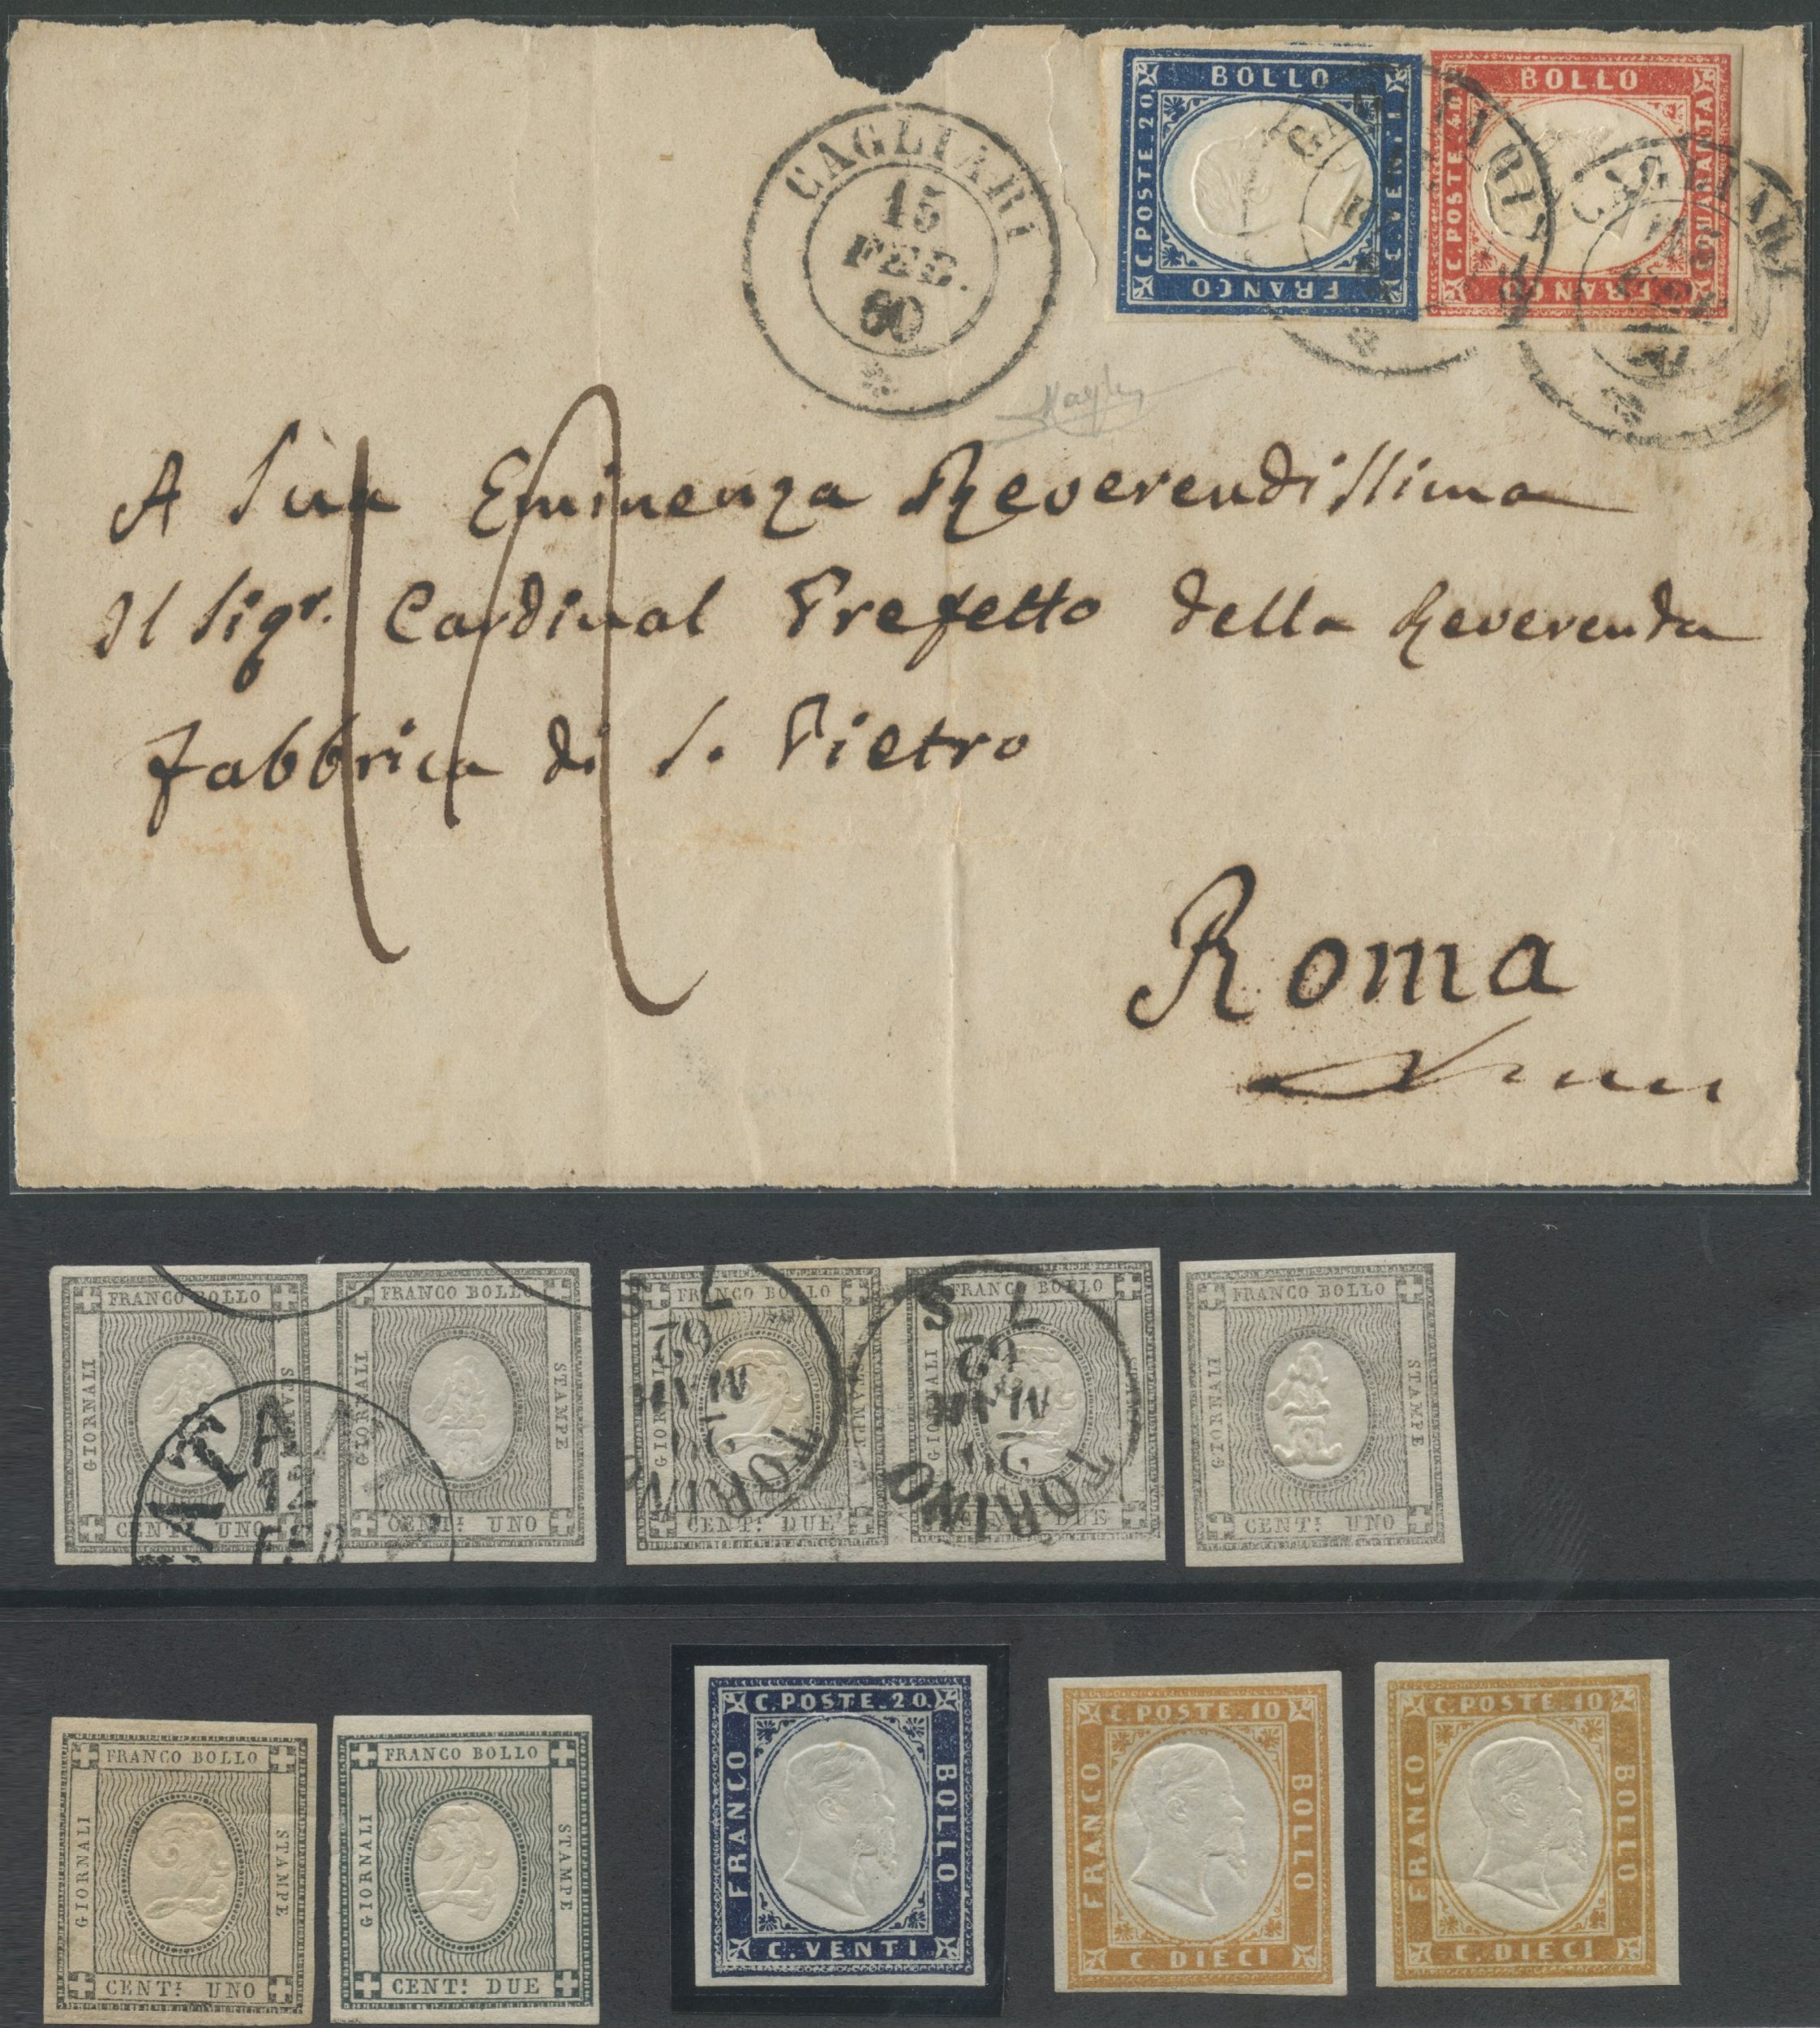 CAGLIARI
15
FEB.
60
BOLLO
C. POSTE. 20
C. VENTI
FRANCO
BOLLO
C. POSTE. 40
C. QUARANTA
FRANCO
CAGLIARI
CAGLIARI
A Sua Eminenza Reverendissima
Il Sigr. Cardinal Prefetto della Reverenda
Fabbrica di S. Pietro
Roma
FRANCO BOLLO
GIORNALI
STAMPE
CENT: UNO
12
FRANCO BOLLO
GIORNALI
STAMPE
CENT: UNO
FRANCO BOLLO
GIORNALI
STAMPE
CENT: DUE
TORINO
62
7 S
FRANCO BOLLO
GIORNALI
STAMPE
CENT: DUE
TORINO
62
7 S
FRANCO BOLLO
GIORNALI
STAMPE
1
CENT: UNO
FRANCO BOLLO
GIORNALI
STAMPE
2
CENT: UNO
FRANCO BOLLO
GIORNALI
STAMPE
2
CENT: DUE
C. POSTE. 20.
FRANCO
BOLLO
C. VENTI
C. POSTE. 10
FRANCO
BOLLO
C. DIECI
C. POSTE. 10
FRANCO
BOLLO
C. DIECI